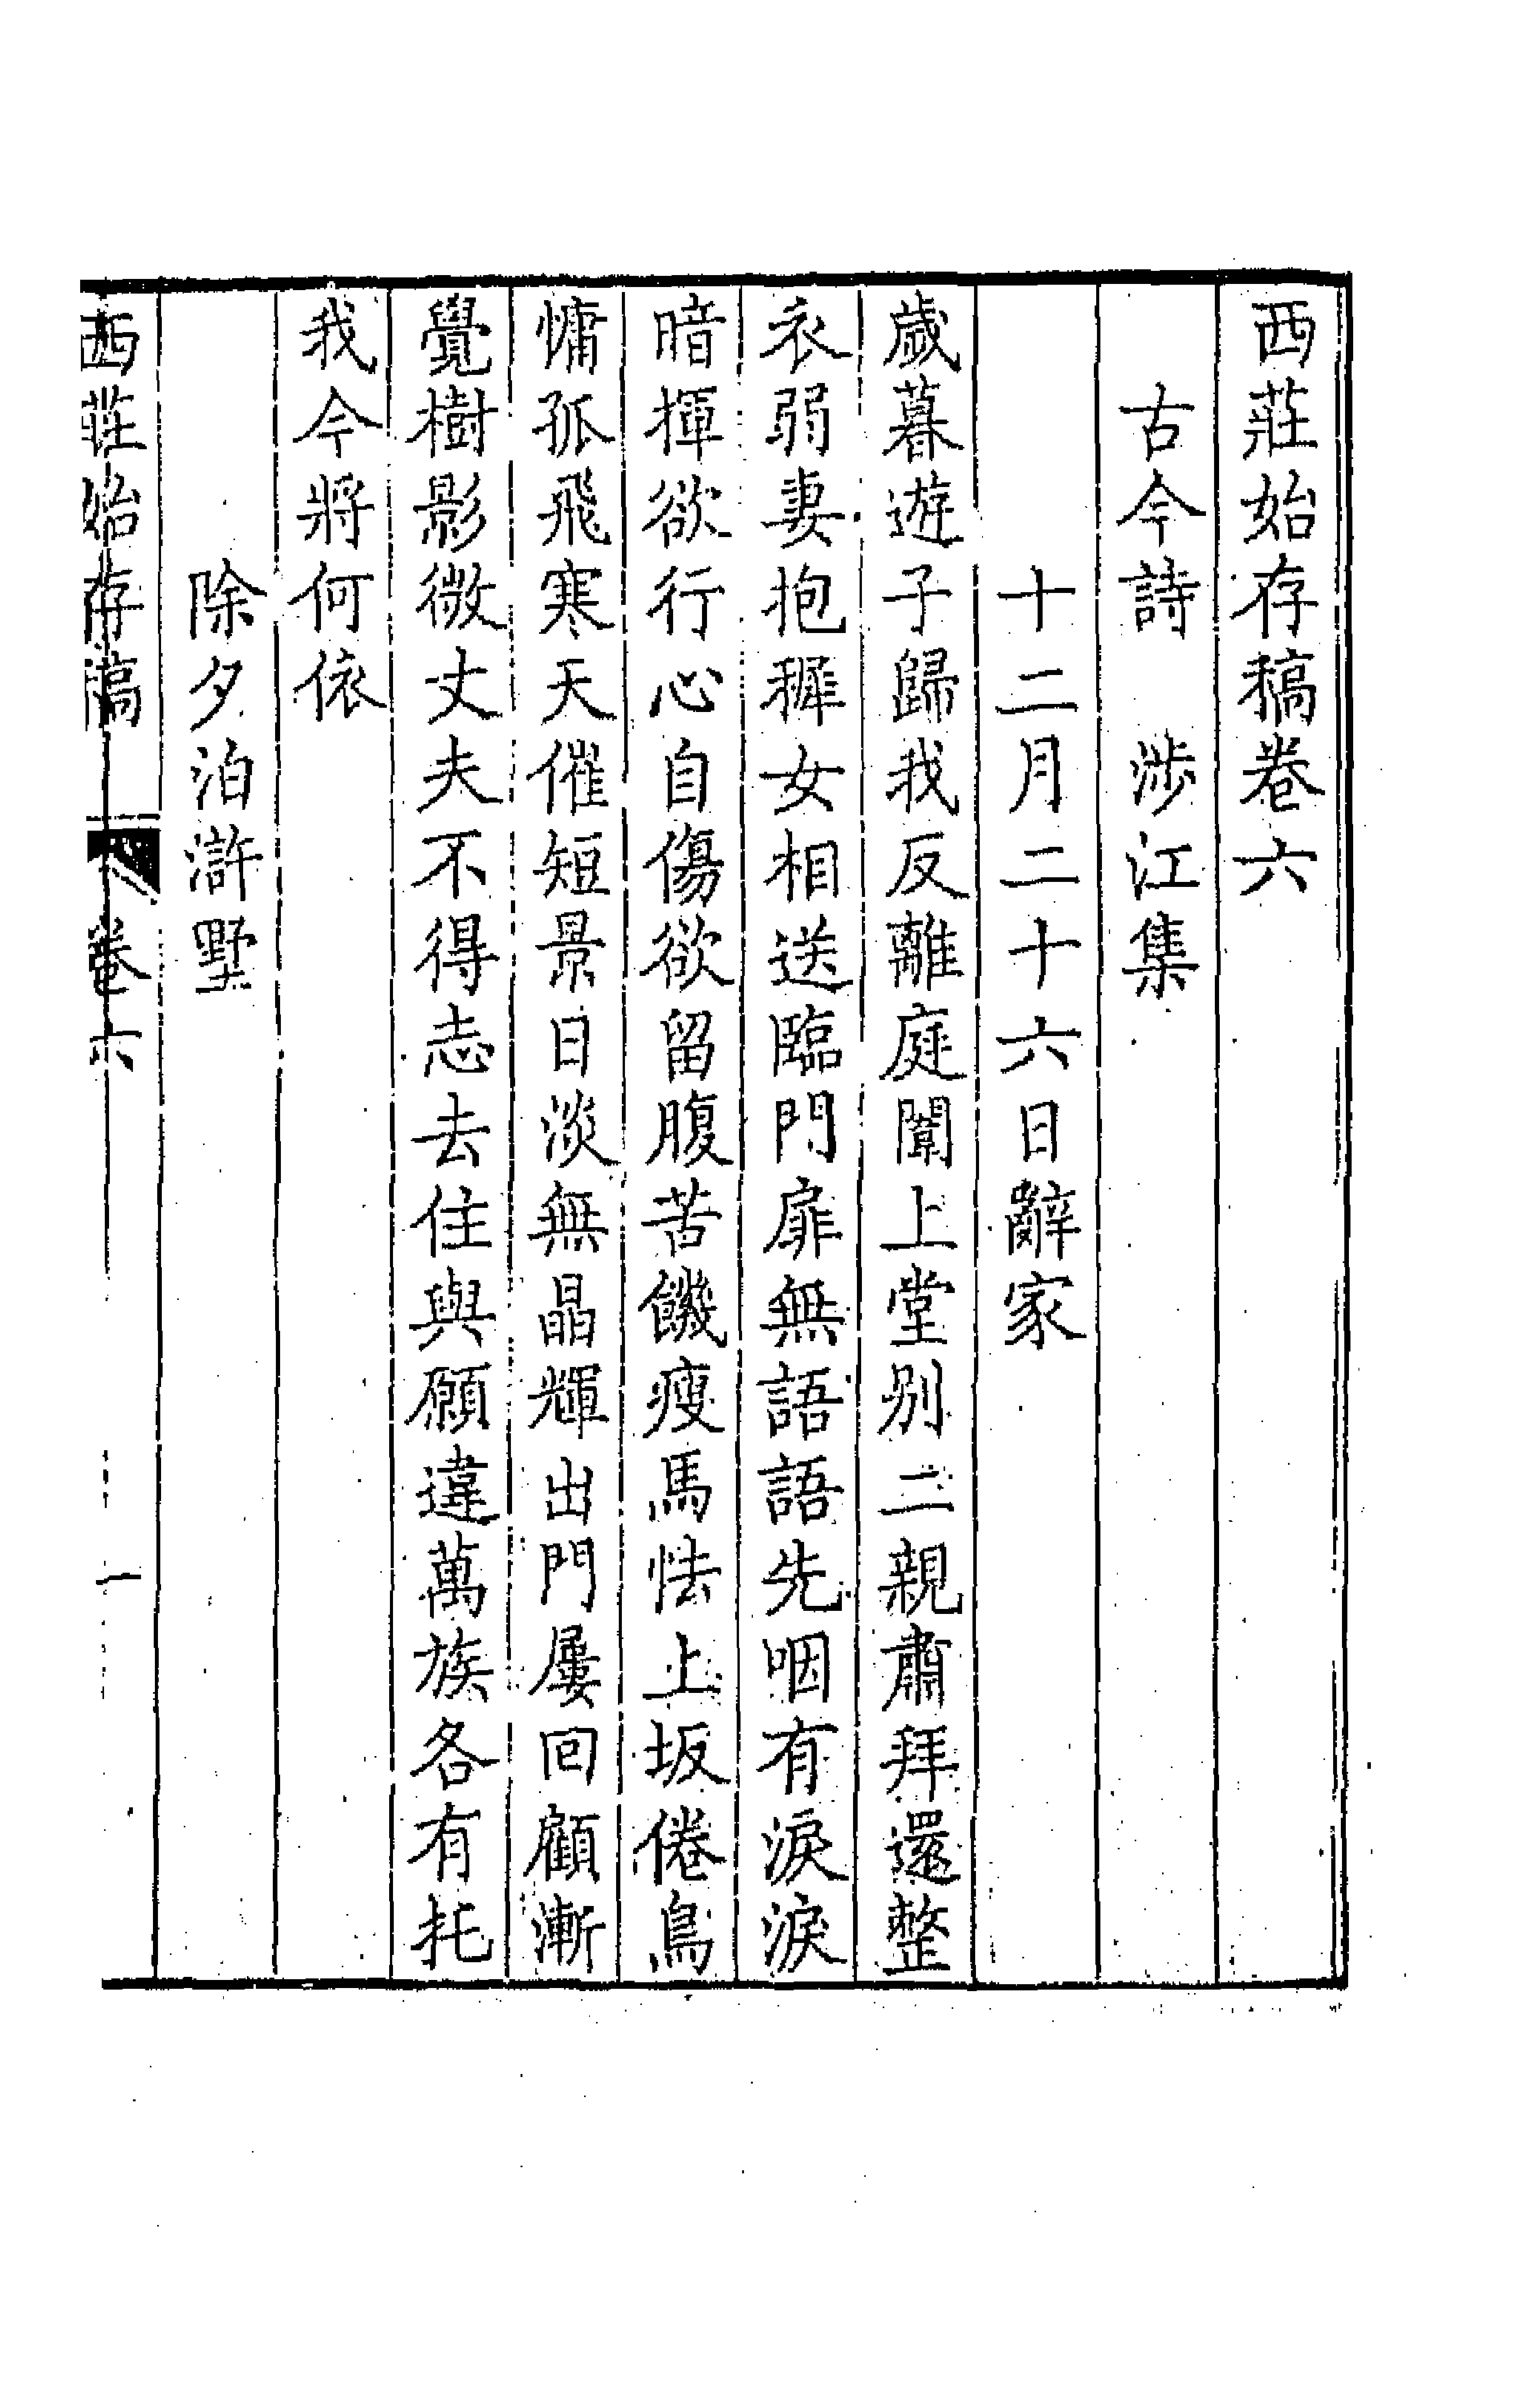 西莊始存稿卷六
古今詩　涉江集
十二月二十六日辭家
歲暮遊子歸我反離庭闈上堂別二親肅拜還整
衣弱妻抱穉女相送臨門扉無語語先咽有淚淚
暗揮欲行心自傷欲留腹苦饑瘦馬怯上坂倦鳥
慵孤飛寒天催短景日淡無晶輝出門屢回顧漸
覺樹影微丈夫不得志去住與願違萬族各有托
我今將何依
除夕泊滸墅
西莊始存稿　卷六　一